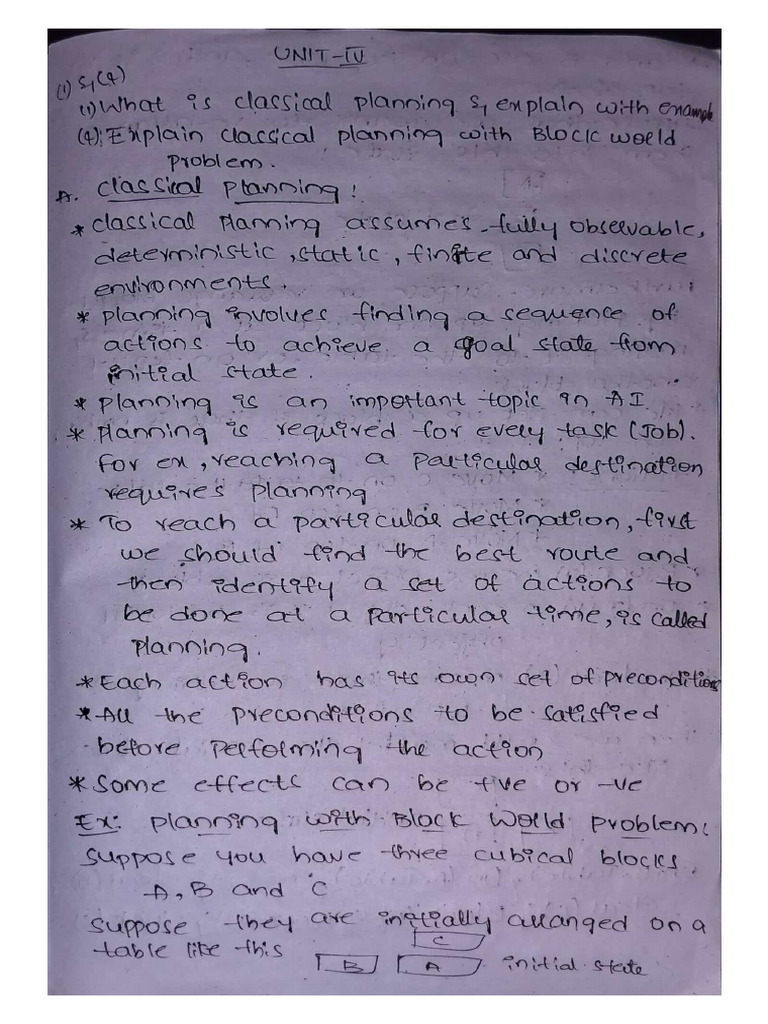 UNIT-IV
(1) & (4)
(1) What is classical planning & explain with example
(4): Explain classical planning with Block world
problem.
A. classical planning:
* classical planning assumes fully observable,
deterministic, static, finite and discrete
environments.
* planning involves finding a sequence of
actions to achieve a goal state from
initial state.
* planning is an important topic in AI
* planning is required for every task (Job).
for ex, reaching a particular destination
requires planning
* To reach a particular destination, first
we should find the best route and
then identify a set of actions to
be done at a particular time, is called
planning.
* Each action has its own set of preconditions
* All the preconditions to be satisfied
before performing the action
* Some effects can be +ve or -ve
Ex: planning with Block World problem:
suppose you have three cubical blocks
A, B and C
suppose they are initially arranged on a
table like this
C
B A initial state